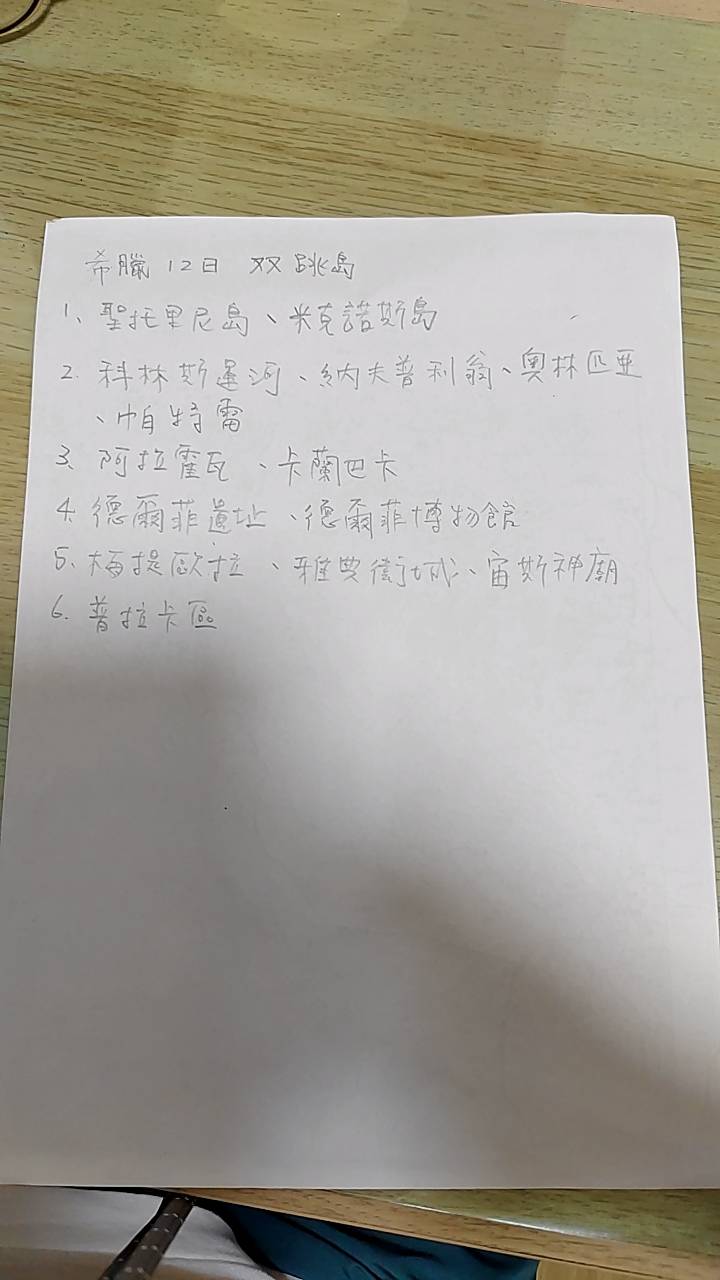 希臘12日 双跳島
1、聖托里尼島、米克諾斯島
2. 科林斯運河、納夫普利翁、奧林匹亞
、帕特雷
3、阿拉霍瓦、卡蘭巴卡
4. 德爾菲遺址、德爾菲博物館
5、梅提歐拉、雅典衛城、宙斯神廟
6. 普拉卡區